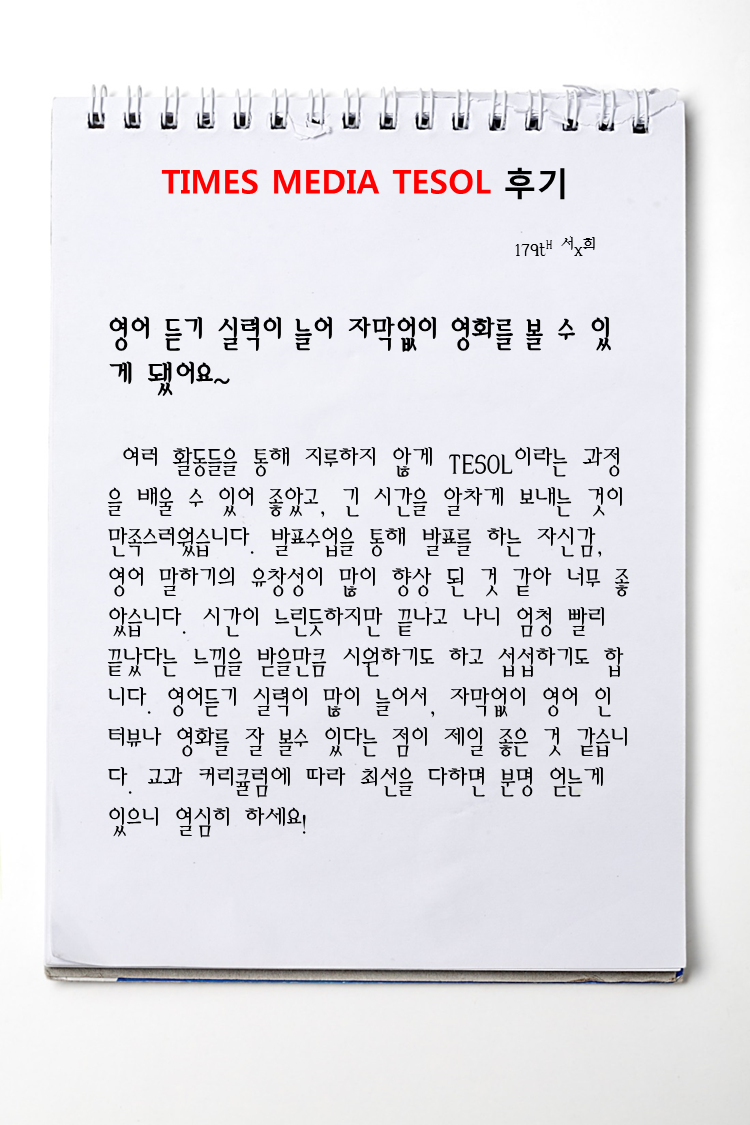 TIMES MEDIA TESOL 후기
179tH 서x희
영어 듣기 실력이 늘어 자막없이 영화를 볼 수 있
게 됐어요~
여러 활동들을 통해 지루하지 않게 TESOL이라는 과정
을 배울 수 있어 좋았고, 긴 시간을 알차게 보내는 것이
만족스러웠습니다. 발표수업을 통해 발표를 하는 자신감,
영어 말하기의 유창성이 많이 향상 된 것 같아 너무 좋
았습니다. 시간이 느린듯하지만 끝나고 나니 엄청 빨리
끝났다는 느낌을 받을만큼 시원하기도 하고 섭섭하기도 합
니다. 영어듣기 실력이 많이 늘어서, 자막없이 영어 인
터뷰나 영화를 잘 볼수 있다는 점이 제일 좋은 것 같습니
다. 교과 커리큘럼에 따라 최선을 다하면 분명 얻는게
있으니 열심히 하세요!